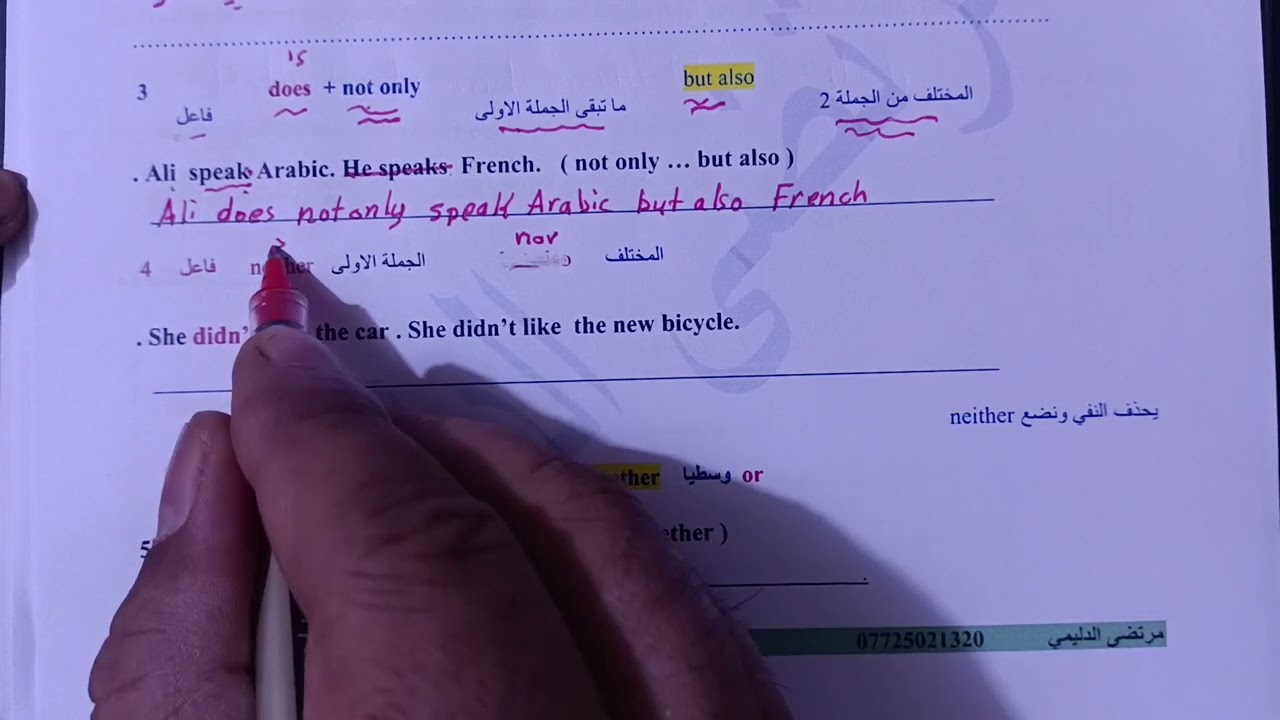 is
3 فاعل does + not only ما تبقى الجملة الاولى but also المختلف من الجملة 2
. Ali speak Arabic. He speaks French. ( not only … but also )
Ali does not only speak Arabic but also French
nor
4 فاعل الجملة الاولى المختلف
. She the car . She didn't like the new bicycle.
يحذف النفي ونضع neither
وسطيا or
5 )
مرتضى الدليمي 07725021320